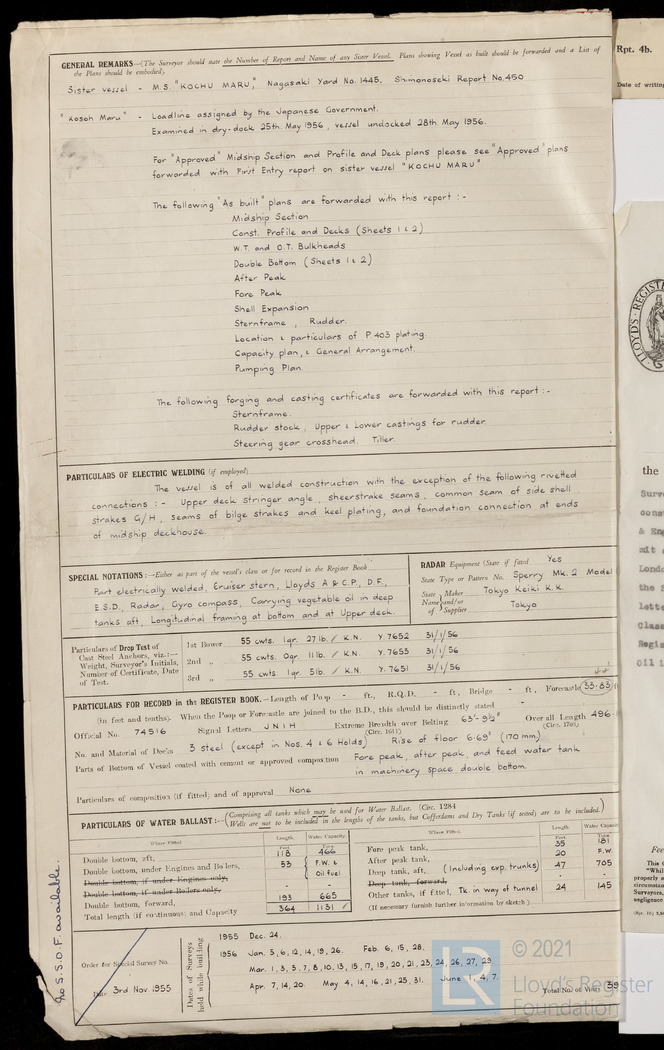 GENERAL REMARKS—(The Surveyor should state the Number of Report and Name of any Sister Vessel. Plans showing Vessel as built should be forwarded and a List of
the Plans should be embodied).
Sister vessel - M.S. "KOCHU MARU", Nagasaki Yard No. 1445. Shimonoseki Report No. 450
"Kosoh Maru" - Loadline assigned by the Japanese Government.
Examined in dry-dock 25th. May 1956, vessel undocked 28th. May 1956.
For "Approved" Midship Section and Profile and Deck plans please see "Approved" plans
forwarded with First Entry report on sister vessel "KOCHU MARU"
The following "As built" plans are forwarded with this report :-
Midship Section
Const. Profile and Decks (Sheets 1 & 2)
W.T. and O.T. Bulkheads
Double Bottom (Sheets 1 & 2)
After Peak
Fore Peak
Shell Expansion
Sternframe, Rudder.
Location & particulars of P.403 plating.
Capacity plan, & General Arrangement.
Pumping Plan.
The following forging and casting certificates are forwarded with this report :-
Sternframe.
Rudder stock, Upper & Lower castings for rudder
Steering gear crosshead. Tiller.
PARTICULARS OF ELECTRIC WELDING (if employed)
The vessel is of all welded construction with the exception of the following rivetted
connections :- Upper deck stringer angle, sheerstrake seams, common seam of side shell
strakes G/H, seams of bilge strakes and keel plating, and foundation connection at ends
of midship deckhouse.
SPECIAL NOTATIONS:—Either as part of the vessel's class or for record in the Register Book
Part electrically welded, Cruiser stern, Lloyds A & C.P., D.F.,
E.S.D., Radar, Gyro compass, Carrying vegetable oil in deep
tanks aft, Longitudinal framing at bottom and at Upper deck.
RADAR Equipment (State if fitted Yes
State Type or Pattern No. Sperry Mk. 2 Model
State Name of Maker and/or Supplier Tokyo Keiki K.K.
Tokyo
Particulars of Drop Test of
Cast Steel Anchors, viz.:—
Weight, Surveyor's Initials,
Number of Certificate, Date
of Test.
1st Bower 55 cwts. 1qr. 27lb. / K.N. Y.7652 31/1/56
2nd „ 55 cwts. 0qr. 11lb. / K.N. Y.7653 31/1/56
3rd „ 55 cwts. 1qr. 5lb. / K.N. Y.7651 31/1/56
PARTICULARS FOR RECORD in the REGISTER BOOK.—Length of Poop - ft., R.Q.D. - ft., Bridge - ft., Forecastle 33.83 ft
(in feet and tenths). When the Poop or Forecastle are joined to the B.D., this should be distinctly stated
Official No. 74516 Signal Letters JNIH Extreme Breadth over Belting 63'-9½" Over all Length 496.
(Circ. 1611) (Circ. 1703)
No. and Material of Decks 3 steel (except in Nos. 4 & 6 Holds) Rise of floor 6.69" (170 mm)
Parts of Bottom of Vessel coated with cement or approved composition Fore peak, after peak, and feed water tank
in machinery space double bottom.
Particulars of composition (if fitted) and of approval None
PARTICULARS OF WATER BALLAST:— (Comprising all tanks which may be used for Water Ballast. (Circ. 1284
Wells are not to be included in the lengths of the tanks, but Cofferdams and Dry Tanks (if tested) are to be included.)
Where Fitted. Length. Water Capacity.
Feet Tons
Double bottom, aft, 118 466
Double bottom, under Engines and Boilers, 53 F.W. & Oil fuel
Double bottom, if under Engines only, - -
Double bottom, if under Boilers only, - -
Double bottom, forward, 193 665
Total length (if continuous) and Capacity 364 1131 /
Where Fitted. Length. Water Capacity
Feet Tons
Fore peak tank, 35 181
After peak tank, 20 F.W.
Deep tank, aft, (Including exp. trunks) 47 705
Deep tank, forward, - -
Other tanks, if fitted, Tk. in way of tunnel 24 145
(If necessary furnish further information by sketch).
No S.S.O.F. available.
Order for Special Survey No.
Date 3rd Nov 1955
Dates of Surveys held while building
1955 Dec. 24.
1956 Jan. 5, 6, 12, 14, 19, 26. Feb. 6, 15, 28.
Mar. 1, 3, 5, 7, 8, 10, 13, 15, 17, 19, 20, 21, 23, 24, 26, 27, 29.
Apr. 7, 14, 20. May 4, 14, 16, 21, 25, 31. June 1, 4, 7.
Total No. of Visits 39
Rpt. 4b.
Date of writing
LLOYD'S REGISTER
the
Surve
cons
& En
Londo
the S
lette
Class
Regis
Oil i
Fee
This C
"Whil
properly
circumstan
Surveyors,
negligence
© 2021
Lloyd's Register
Foundation